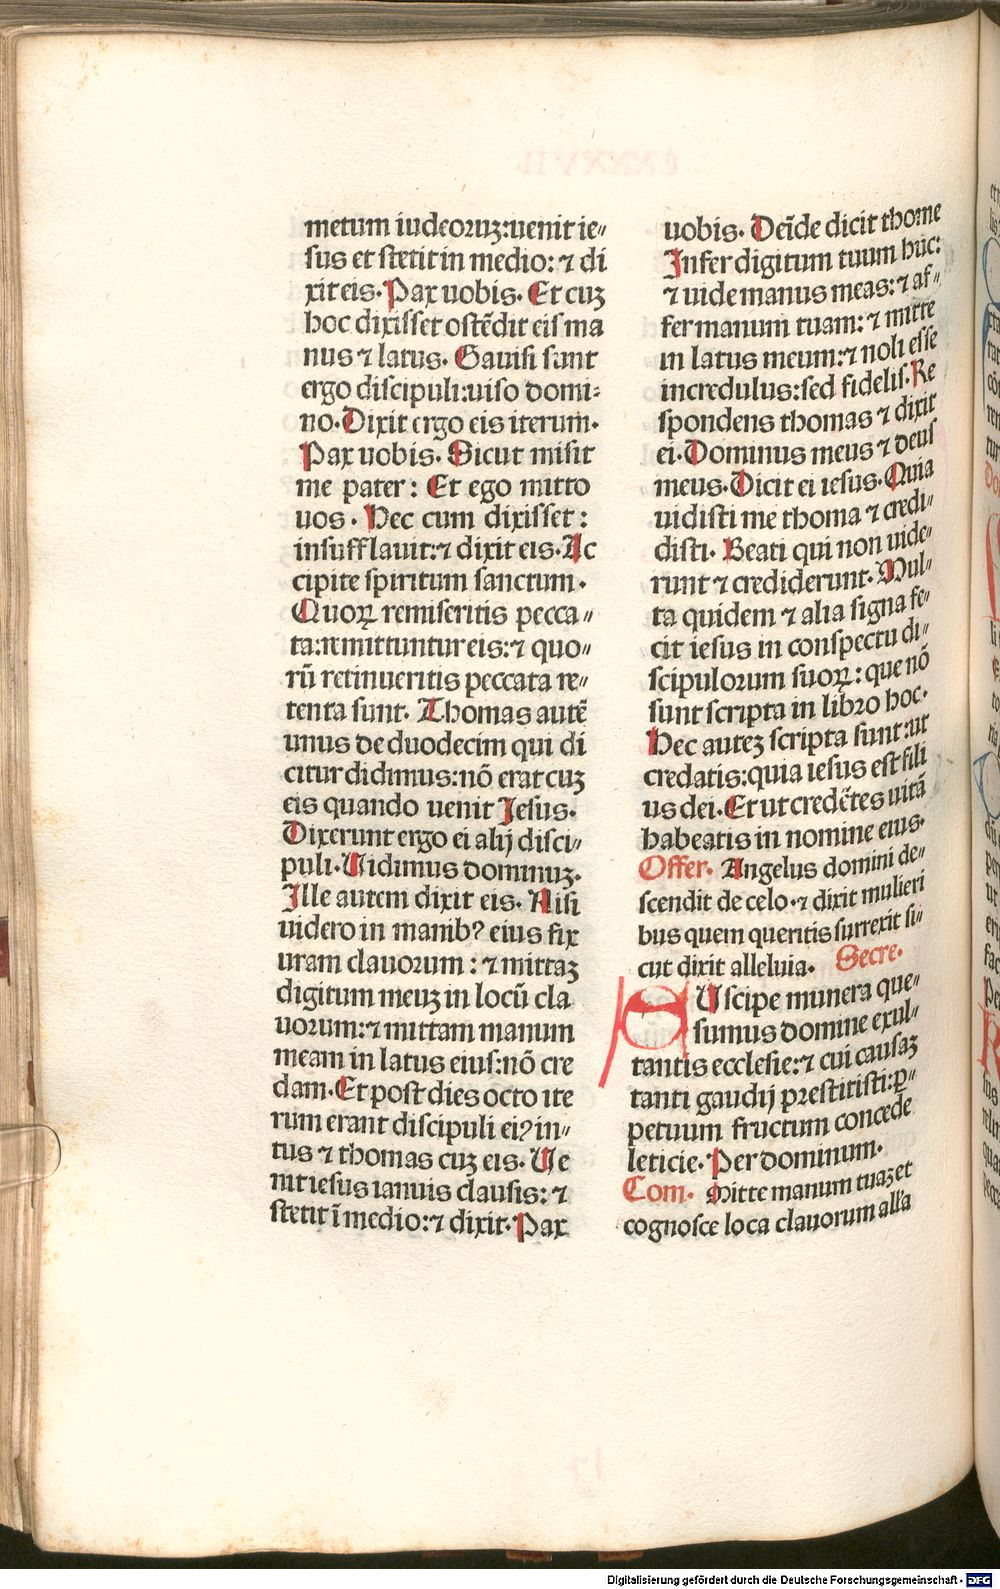 metum iudeoruʒ:uenit ie⸗
sus et stetit in medio: ⁊ di
xit eis. Pax uobis. Et cuʒ
hoc dixisset ostēdit eis ma
nus ⁊ latus. Gauisi sunt
ergo discipuli:uiso domi⸗
no. Dixit ergo eis iterum.
Pax uobis. Sicut misit
me pater: Et ego mitto
uos. Hec cum dixisset:
insufflauit:⁊ dixit eis. Ac
cipite spiritum sanctum.
Quoꝝ remiseritis pecca⸗
ta:remittuntur eis:⁊ quo⸗
rū retinueritis peccata re⸗
tenta sunt. Thomas autē
unus de duodecim qui di
citur didimus:nō erat cuʒ
eis quando uenit Jesus.
Dixerunt ergo ei alij disci⸗
puli. Uidimus dominuʒ.
Ille autem dixit eis. Nisi
uidero in manibꝰ eius fix
uram clauorum: ⁊ mittaʒ
digitum meuʒ in locū cla
uorum:⁊ mittam manum
meam in latus eius:nō cre
dam. Et post dies octo ite
rum erant discipuli eiꝰ in⸗
tus ⁊ thomas cuʒ eis. Ue
nit iesus ianuis clausis: ⁊
stetit ī medio:⁊ dixit. Pax
uobis. Deīde dicit thome
Infer digitum tuum huc:
⁊ uide manus meas: ⁊ af⸗
fer manum tuam: ⁊ mitte
in latus meum:⁊ noli esse
incredulus:sed fidelis. Re
spondens thomas ⁊ dixit
ei. Dominus meus ⁊ deus
meus. Dicit ei iesus. Quia
uidisti me thoma ⁊ credi⸗
disti. Beati qui non uide⸗
runt ⁊ crediderunt. Mul⸗
ta quidem ⁊ alia signa fe⸗
cit iesus in conspectu di⸗
scipulorum suoꝝ: que nō
sunt scripta in libro hoc.
Hec auteʒ scripta sunt:ut
credatis:quia iesus est fili
us dei. Et ut credētes uitā
habeatis in nomine eius.
Offer. Angelus domini de⸗
scendit de celo.⁊ dixit mulieri
bus quem queritis surrexit si⸗
cut dixit alleluia. Secre.
SUscipe munera que⸗
sumus domine exul⸗
tantis ecclesie:⁊ cui causaʒ
tanti gaudij prestitisti:ꝑ⸗
petuum fructum concede
leticie. Per dominum.
Com. Mitte manum tuaʒ et
cognosce loca clauorum alľa
Digitalisierung gefördert durch die Deutsche Forschungsgemeinschaft - DFG